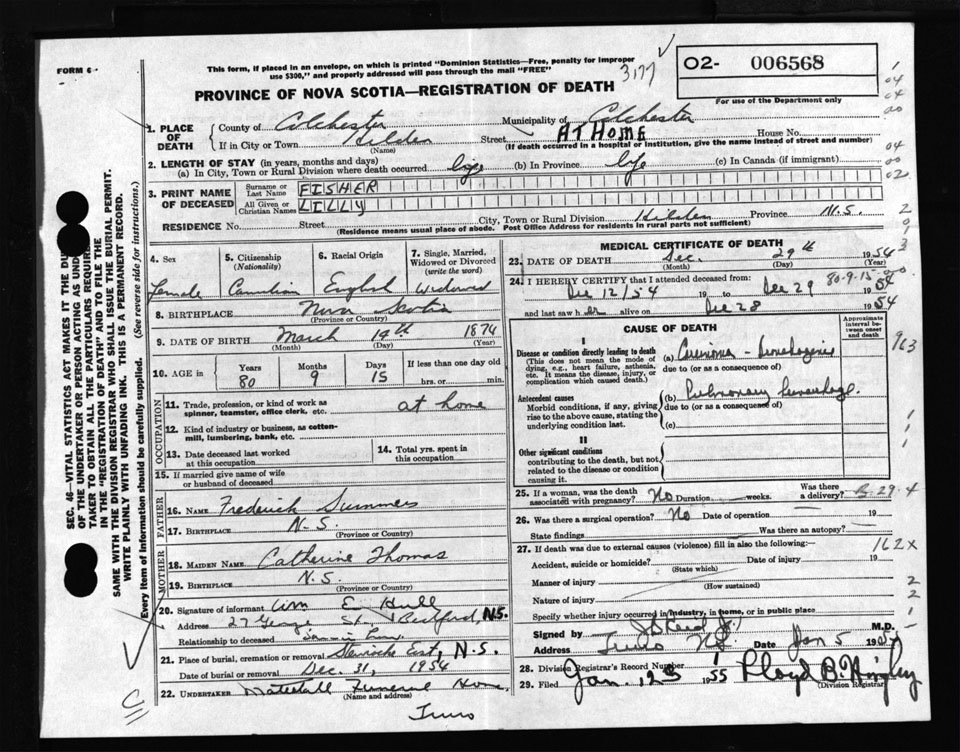 FORM 6
This form, if placed in an envelope, on which is printed "Dominion Statistics—Free, penalty for improper
use $300," and properly addressed will pass through the mail "FREE"
3177
O2- 006568
For use of the Department only
PROVINCE OF NOVA SCOTIA—REGISTRATION OF DEATH
1. PLACE OF DEATH
County of Colchester Municipality of Colchester
If in City or Town Hilden Street AT HOME House No.
(Name) (If death occurred in a hospital or institution, give the name instead of street and number)
2. LENGTH OF STAY (in years, months and days)
(a) In City, Town or Rural Division where death occurred life (b) In Province life (c) In Canada (if immigrant)
3. PRINT NAME OF DECEASED
Surname or Last Name FISHER
All Given or Christian Names LILLY
RESIDENCE No. Street City, Town or Rural Division Hilden Province N.S.
(Residence means usual place of abode. Post Office Address for residents in rural parts not sufficient)
4. Sex
Female
5. Citizenship
(Nationality)
Canadian
6. Racial Origin
English
7. Single, Married, Widowed or Divorced
(write the word)
Widowed
8. BIRTHPLACE Nova Scotia
(Province or Country)
9. DATE OF BIRTH March 14th 1874
(Month) (Day) (Year)
10. AGE in Years Months Days If less than one day old
80 9 15 hrs. or min.
OCCUPATION
11. Trade, profession, or kind of work as
spinner, teamster, office clerk, etc. at home
12. Kind of industry or business, as cotton-
mill, lumbering, bank, etc.
13. Date deceased last worked
at this occupation
14. Total yrs. spent in
this occupation
15. If married give name of wife
or husband of deceased
FATHER
16. Name Frederick Summers
17. BIRTHPLACE N.S.
(Province or Country)
MOTHER
18. MAIDEN NAME Catherine Thomas
19. BIRTHPLACE N.S.
(Province or Country)
20. Signature of informant Wm E. Hull
Address 27 George St., Bedford, N.S.
Relationship to deceased
21. Place of burial, cremation or removal Stewiacke East, N.S.
Date of burial or removal Dec. 31, 1954
22. UNDERTAKER Funeral Home,
(Name and address)
Truro
MEDICAL CERTIFICATE OF DEATH
23. DATE OF DEATH Dec. 29th 1954
(Month) (Day) (Year)
80-9-15
24. I HEREBY CERTIFY that I attended deceased from:
Dec 12/54 19 to Dec 29 1954
and last saw her alive on Dec 28 1954
CAUSE OF DEATH
Approximate interval between onset and death
I
Disease or condition directly leading to death
(This does not mean the mode of
dying, e.g., heart failure, asthenia,
etc. It means the disease, injury, or
complication which caused death.)
(a) Carcinoma -
due to (or as a consequence of)
Antecedent causes
Morbid conditions, if any, giving
rise to the above cause, stating the
underlying condition last.
(b) Pulmonary hemorrhage.
due to (or as a consequence of)
(c)
II
Other significant conditions
contributing to the death, but not
related to the disease or condition
causing it.
25. If a woman, was the death
associated with pregnancy? No Duration weeks. Was there
a delivery?
26. Was there a surgical operation? No Date of operation 19
State findings Was there an autopsy?
27. If death was due to external causes (violence) fill in also the following:— 162X
Accident, suicide or homicide? Date of injury 19
(State which)
Manner of injury
(How sustained)
Nature of injury
Specify whether injury occurred in industry, in home, or in public place
Signed by M.D.
Address Truro N.S. Date Jan 5
28. Division Registrar's Record Number 1
29. Filed Jan 12 1955 Lloyd B.
(Division Registrar)
SEC. 46—VITAL STATISTICS ACT MAKES IT THE DU
OF THE UNDERTAKER OR PERSON ACTING AS UND
TAKER TO OBTAIN ALL THE PARTICULARS REQUIRE
IN THE "REGISTRATION OF DEATH" AND TO FILE THE
SAME WITH THE DIVISION REGISTRAR WHO SHALL ISSUE THE BURIAL PERMIT.
WRITE PLAINLY WITH UNFADING INK. THIS IS A PERMANENT RECORD.
Every item of information should be carefully supplied. (See reverse side for instructions.)